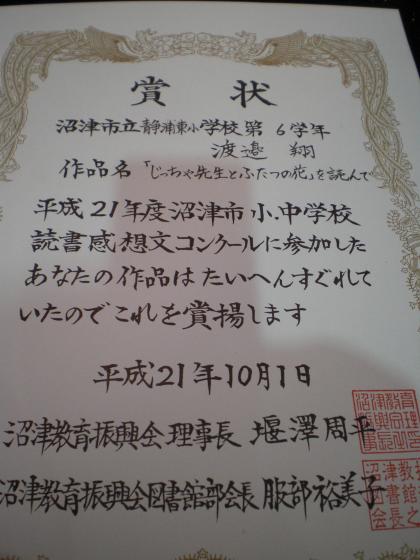 賞状
沼津市立静浦東小学校第6学年
渡邉 翔
作品名「じっちゃ先生とふたつの花」を読んで
平成21年度沼津市小、中学校
読書感想文コンクールに参加した
あなたの作品はたいへんすぐれて
いたのでこれを賞揚します
平成21年10月1日
沼津教育振興会理事長 堰澤周平
沼津教育振興会図書館部会長 服部裕美子